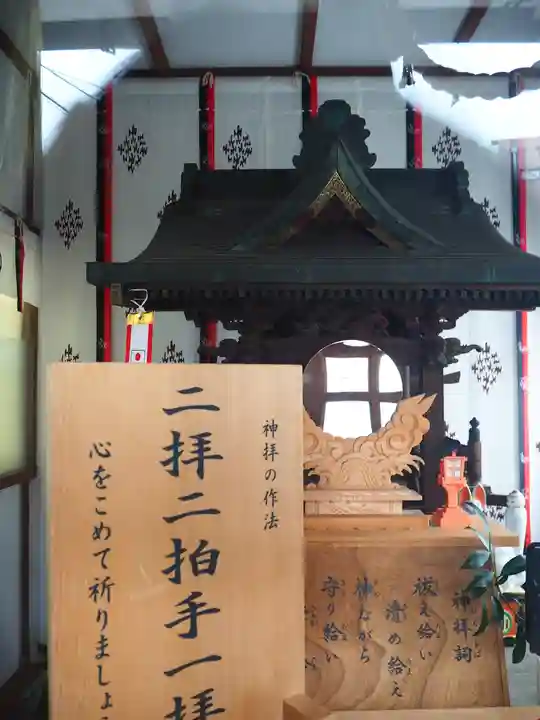 神拝の作法
二拝二拍手一拝
心をこめて祈りましょ
神拝詞
祓え給い
清め給え
神ながら
守り給い